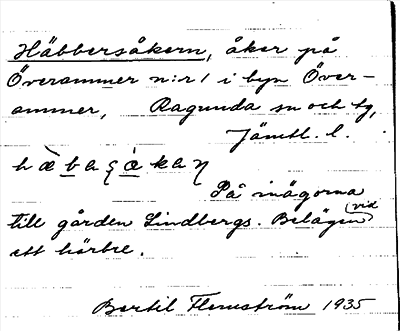 Häbbersåkern, åker på
Överammer n:r 1 i byn Över-
ammer, Ragunda sn och tg,
Jämtl. l.
På inägorna
till gården Lindbergs. Belägen vid
ett härbre.
Bertil Flemström 1935